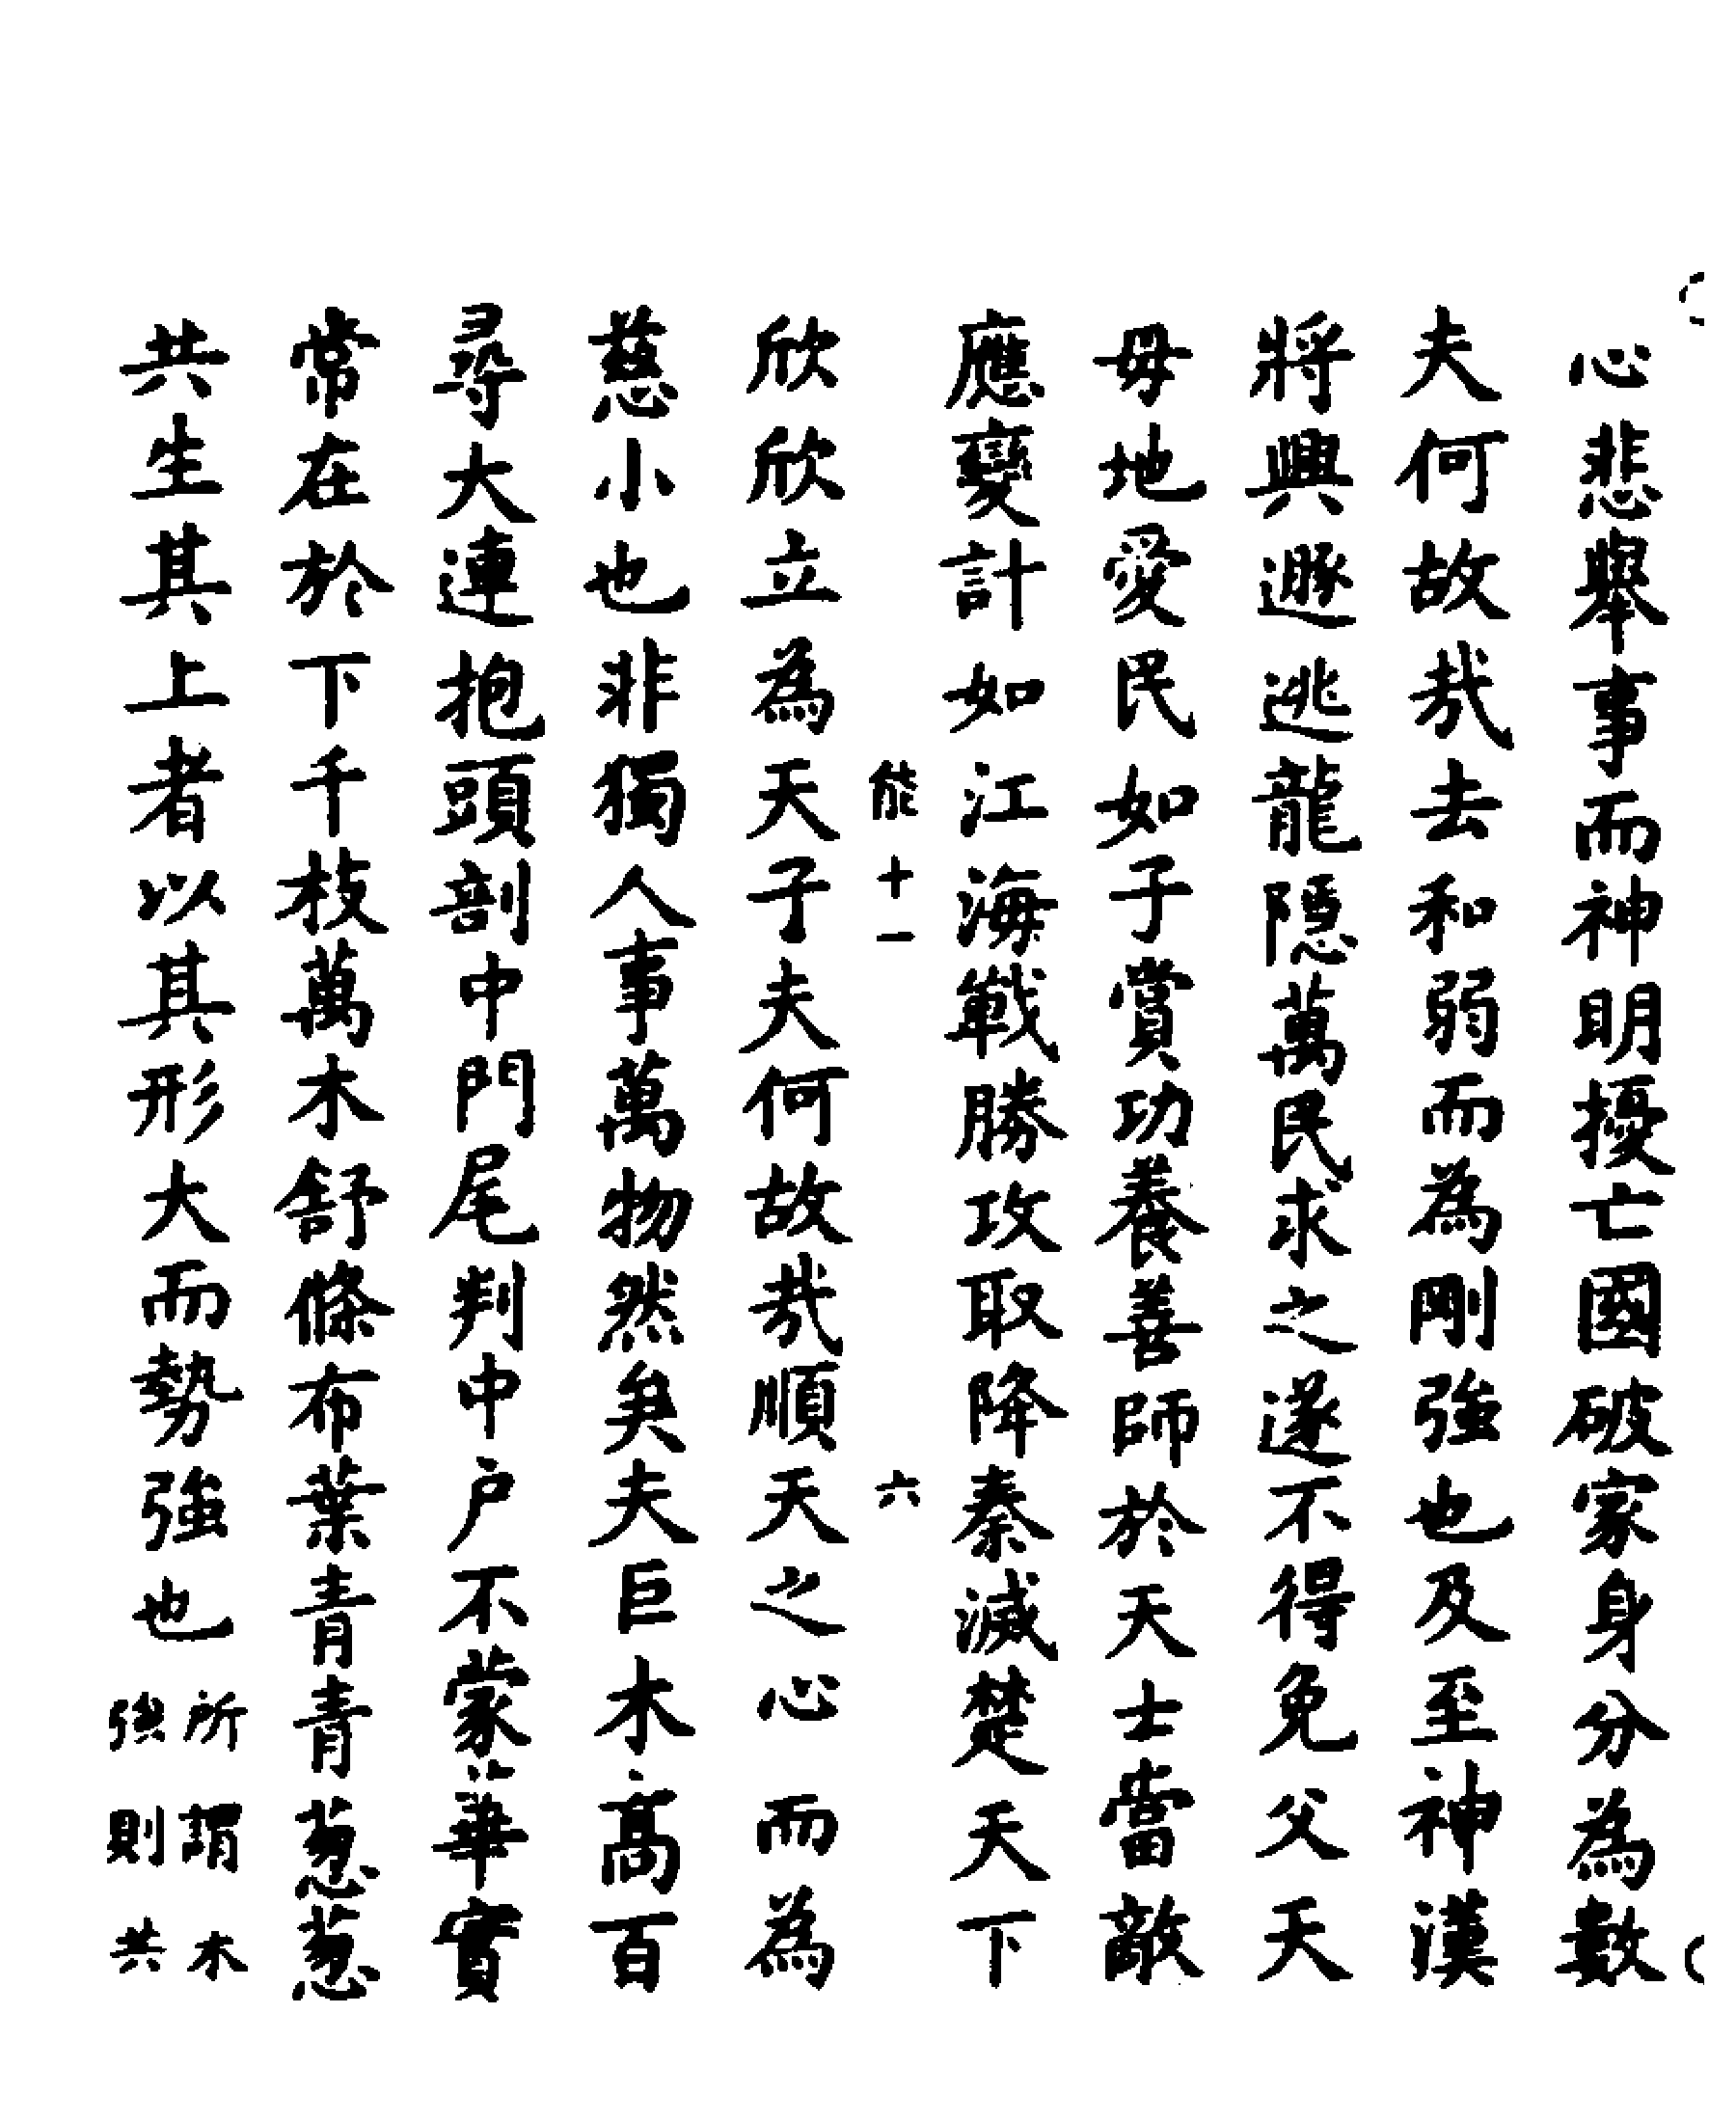 心悲舉事而神明擾亡國破家身分為數
夫何故哉去和弱而為剛強也及至神漢
將興遯逃龍隱萬民求之遂不得免父天
母地愛民如子賞功養善師於天士當敵
應變計如江海戰勝攻取降秦滅楚天下
能十一 六
欣欣立為天子夫何故哉順天之心而為
慈小也非獨人事萬物然矣夫巨木高百
尋大連抱頭剖中門尾判中戶不蒙華實
常在於下千枝萬木舒條布葉青青蔥蔥
共生其上者以其形大而勢強也所謂木
強則共